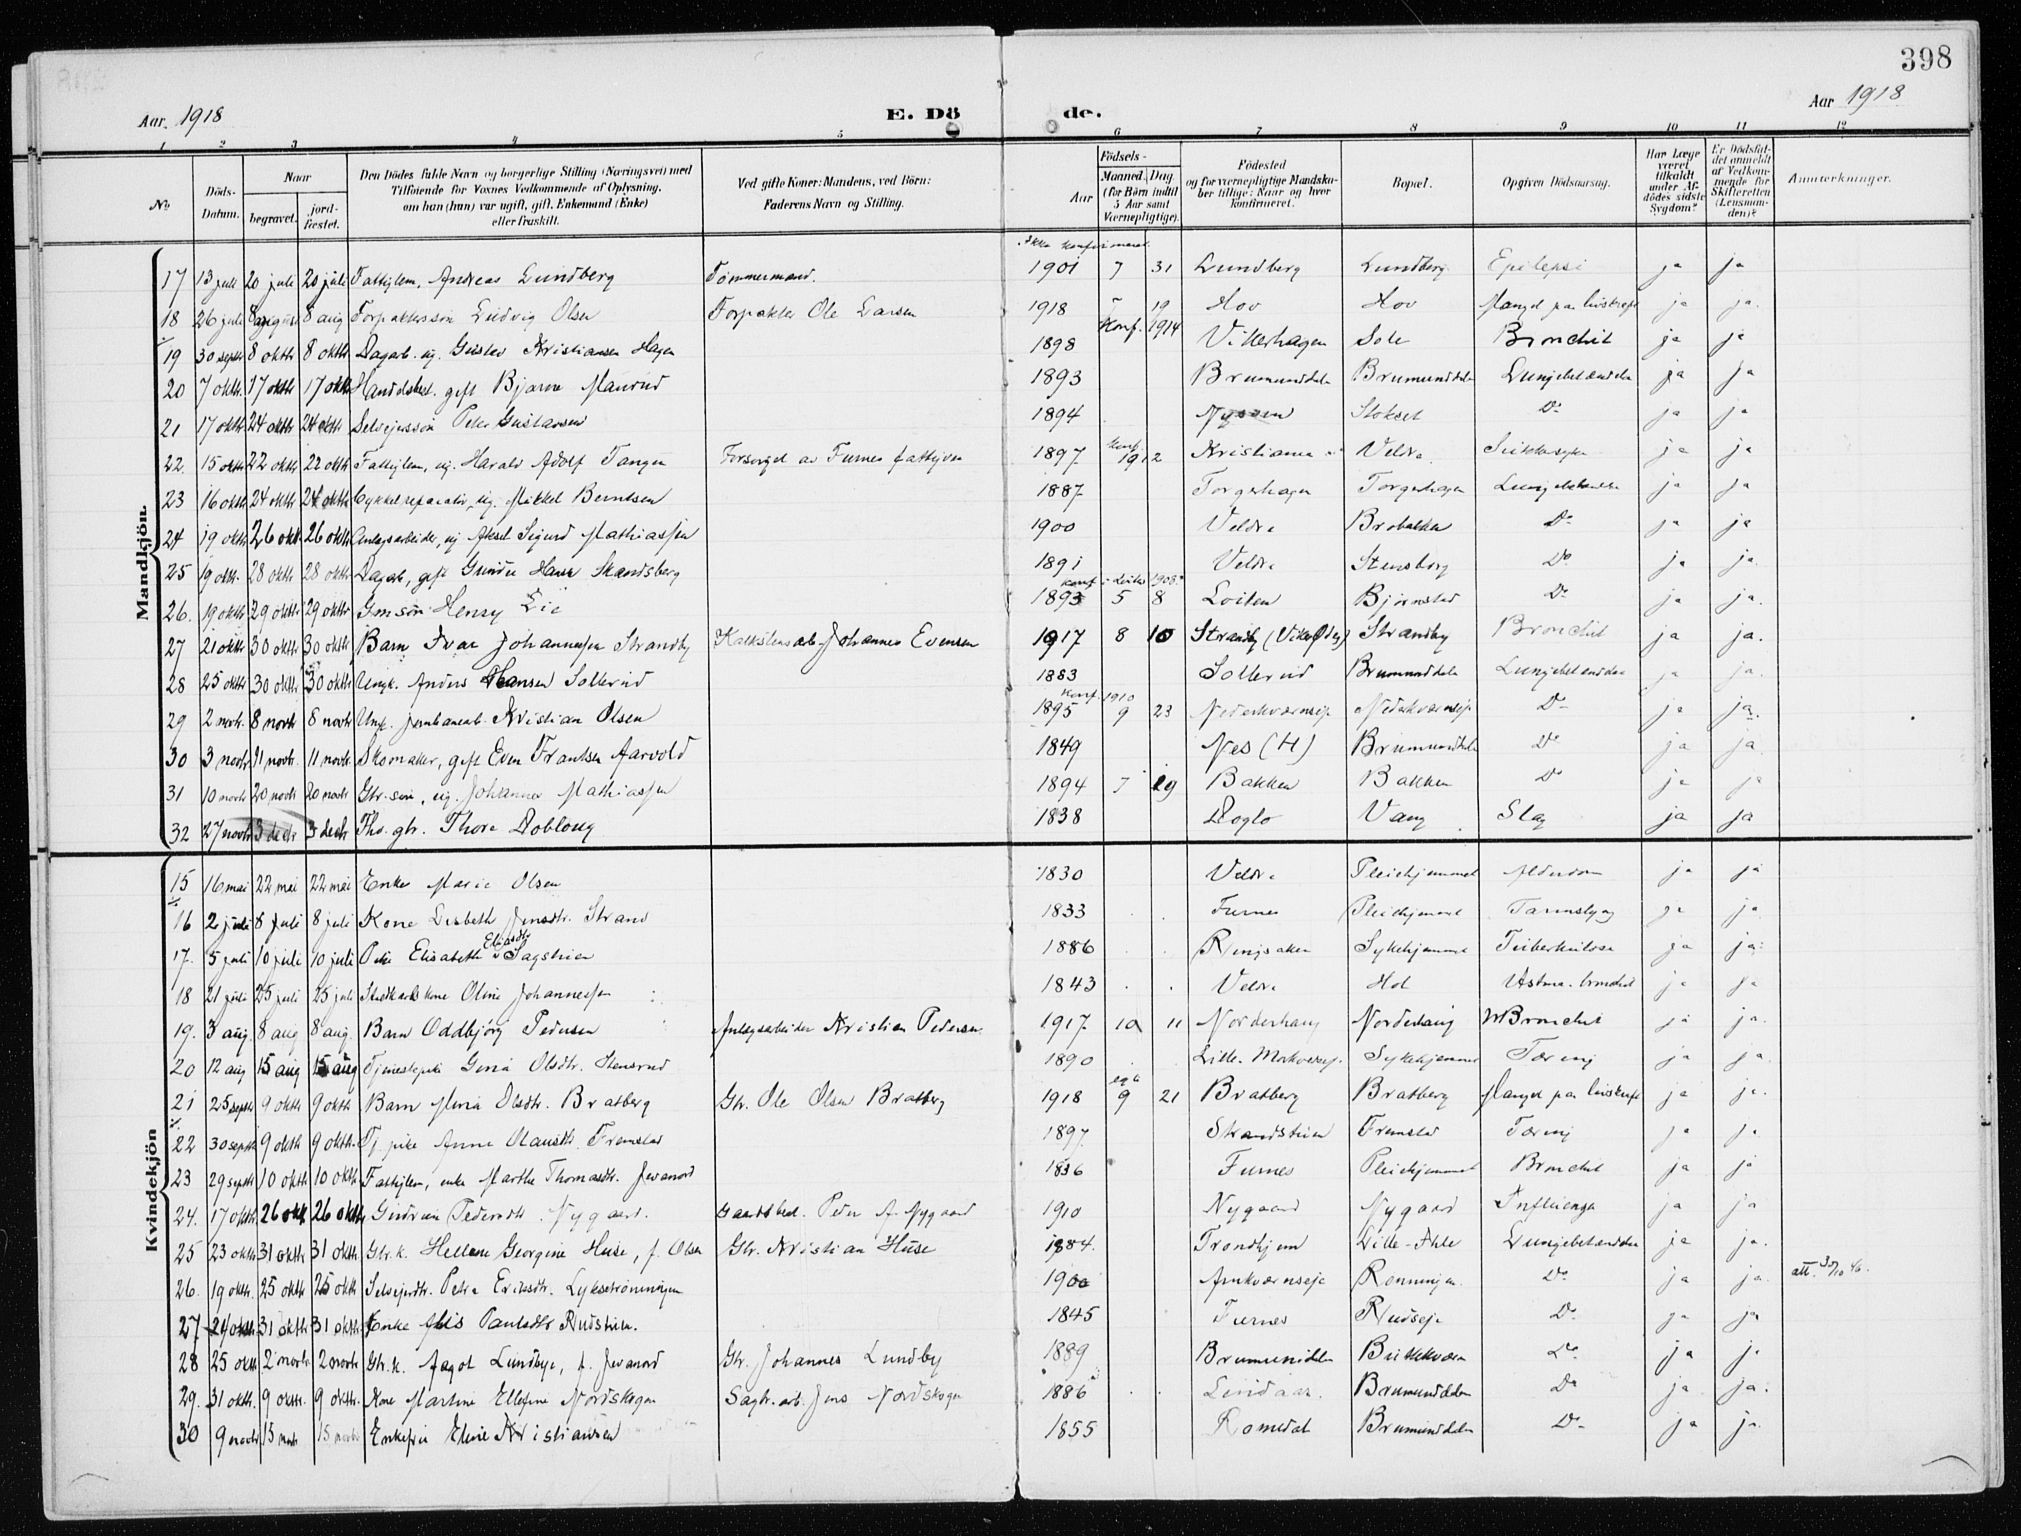 398
Aar 1918 E. Dö de. Aar 1918
1 2 3 4 5 6 7 8 9 10 11 12
No Döds-Datum. Naar begravet. jordfæstet. Den Dödes fulde Navn og borgerlige Stilling (Næringsvei) med Tilföiende for Voxnes Vedkommende af Oplysning, om han (hun) var ugift, gift, Enkemand (Enke) eller fraskilt. Ved gifte Koner: Mandens, ved Börn: Faderens Navn og Stilling. Födsels- Aar Maaned. Dag. (for Börn indtil 5 Aar samt Værnepligtige). Födested og for værnepligtige Mandskaber tillige: Naar og hvor konfirmeret. Bopæl. Opgiven Dödsaarsag. Har Læge været tilkaldt under Afdödes sidste Sygdom? Er Dödsfaldet anmeldt af Vedkommende for Skifteretten (Lensmanden)? Anmærkninger.
Mandkjön.
Ikke konfirmeret
17 13 juli 20 juli 20 juli Fattiglem, Andreas Lundberg Tömmermand. 1901 7 31 Lundberg Lundberg Epilepsi ja ja
18 26 juli 8 august 8 aug Forpaktersön Ludvig Olsen Forpakter Ole Larsen 1918 19 Hov Hov Mangel paa livskraft ja ja.
Konf. 1914
19 30 septr 8 oktbr 8 oktbr Dagarb. ug. Gustav Kristiansen Hagen 1898 Vikerhagen Sole Bronchit ja ja
20 7 oktbr. 17 oktbr 17 oktbr Handelsbet. gift Bjarne Maurud 1893 Brumunddalen Brumunddalen Lungebetændelse ja ja
21 17 oktbr 24 oktbr 24 oktbr Selveiersön Peter Gustavsen 1894 Stokset Do ja ja
22. 15 oktbr 22 oktbr 22 oktbr Fattiglem, ug. Harald Adolf Tangen Forsörget av Furnes fattigv. 1897 Konf. 1912 Kristiania Veldre Sukkersyke ja ja
23 16 oktbr 24 oktbr 24 oktbr Cykkelreparatör, ug. Mikkel Berntsen 1887 Torgerhagen Torgerhagen Lungebetændelse ja ja
24 19 oktbr 26 oktbr 26 oktbr Anlægsarbeider, ug. Aksel Sigurd Mathiassen 1900 Veldre Brobakken Do ja ja
25 19 oktbr. 28 oktbr 28 oktbr Dagarb, gift Gunder Hansen Skandsberg 1891 Veldre Stensborg Do ja ja.
Konf. i Löiten 1908
26. 19 oktbr 29 oktbr 29 oktbr Gmsön Henry Lie 1893 5 8 Löiten Björnstad Do ja ja.
27 21 oktbr 30 oktbr 30 oktbr Barn Ivar Johannessen Strandby Kalkstensarb. Johannes Evensen 1917 8 10 Strandby Strandby Bronchit ja ja.
28 25 oktbr 30 oktbr 30 oktbr Ungk. Anders Hansen Sollerud 1883 Sollerud Brumunddalen Lungebetændelse ja ja.
Konf. 1910
29 2 novbr. 8 novbr 8 novbr Ungk. jernbanearb. Kristian Olsen 1895 9 23 Nederkværnseje Nederkværnseje Do ja ja.
30 3 novbr 11 novbr. 11 novbr. Skomaker, gift Even Frantsen Aarvold 1849 Nes (H) Brumunddalen Do ja ja
31 10 novbr 20 novbr 20 novbr Gbr.sön, ug. Johannes Mathiassen 1894 7 29 Bakken Bakken Do ja ja
32 27 novbr 3 decbr 3 decbr Fho. gbr. Thore Doblong 1838 Doglo Vang Slag ja ja
Kvindekjön
15 16 mai 22 mai 22 mai Enke Marie Olsen 1830 Veldre Pleiehjemmet Alderdom ja ja
16 2 juli 8 juli 8 juli Kone Lisbeth Jensdtr. Strand 1833 Furnes Pleiehjemmet ja ja
17. 5 juli 10 juli 10 juli Pike Elisabeth Eliasdtr Sagstuen 1886 Ringsaker Sykehjemmet Tuberkulose ja ja.
18 21 juli 25 juli 25 juli Oline Johannessen 1843 Veldre Hol Astma. bronchit ja ja
19. 3 aug. 8 aug 8 aug. Barn Oddbjörg Pedersen Anlægsarbeider Kristian Pedersen 1917 10 11 Norderhaug Norderhaug Bronchit ja ja.
20 12 aug 15 aug 15 aug Tjenestepike Gina Olsdtr. Stensrud 1890 Sykehjemmet Tæring ja ja.
21 25 septr 9 oktbr 9 oktbr Barn Maria Olsdtr. Bratberg Gbr. Ole Olsen Bratberg 1918 9 21 Bratberg Bratberg Mangel paa livskraft ja ja.
22 30 septbr 9 oktbr 9 oktbr. Tj. pike Anne Olausdtr. Fremstad 1897 Strandstuen Fremstad Tæring ja ja.
23 29 septbr 10 oktbr 10 oktbr. Fattiglem, enke Marthe Thomasdtr. Jevanord 1836 Furnes Pleiehjemmet Bronchit ja ja
24. 17 oktbr. 26 oktbr 26 oktbr Gudrun Pedersdtr. Nygaard. Gaardsbest. Peder A. Nygaard 1910 Nygaard Nygaard Influenza ja ja
25 23 oktbr 31 oktbr 31 oktbr. Gbr.k. Hellene Georgine Huse, f. Olsen Gbr. Kristian Huse 1884. Trondhjem Lille-Ahle Lungebetændelse ja ja.
26. 19 oktbr. 25 oktbr 25 oktbr Selveierdtr. Petra Eriksdtr. Lyksetrönningen 1900 Arnkværnseje Rönningen. Do. ja ja. att. 30/10 46.
27 24 oktbr 31 oktbr 31 oktbr Enke Paulsdtr Rudstuen. 1845 Furnes Rudseje Do. ja ja
28 25 oktbr 2 novbr. 2 novbr Gbr.k. Aagot Lundbye, f. Jevanord Gbr. Johannes Lundby 1889 Brumunddalen Do. ja ja
29. 31 oktbr. 9 oktbr. 9 oktbr. Kone Martine Ellefine Nordskogen Sagbr.arb. Jens Nordskogen 1886 Lindaas. Brumunddalen Do ja ja.
30 9 novbr 15 novbr 15 novbr Enkefru Eline Kristiansen 1855 Romedal Brumunddalen Do ja ja.